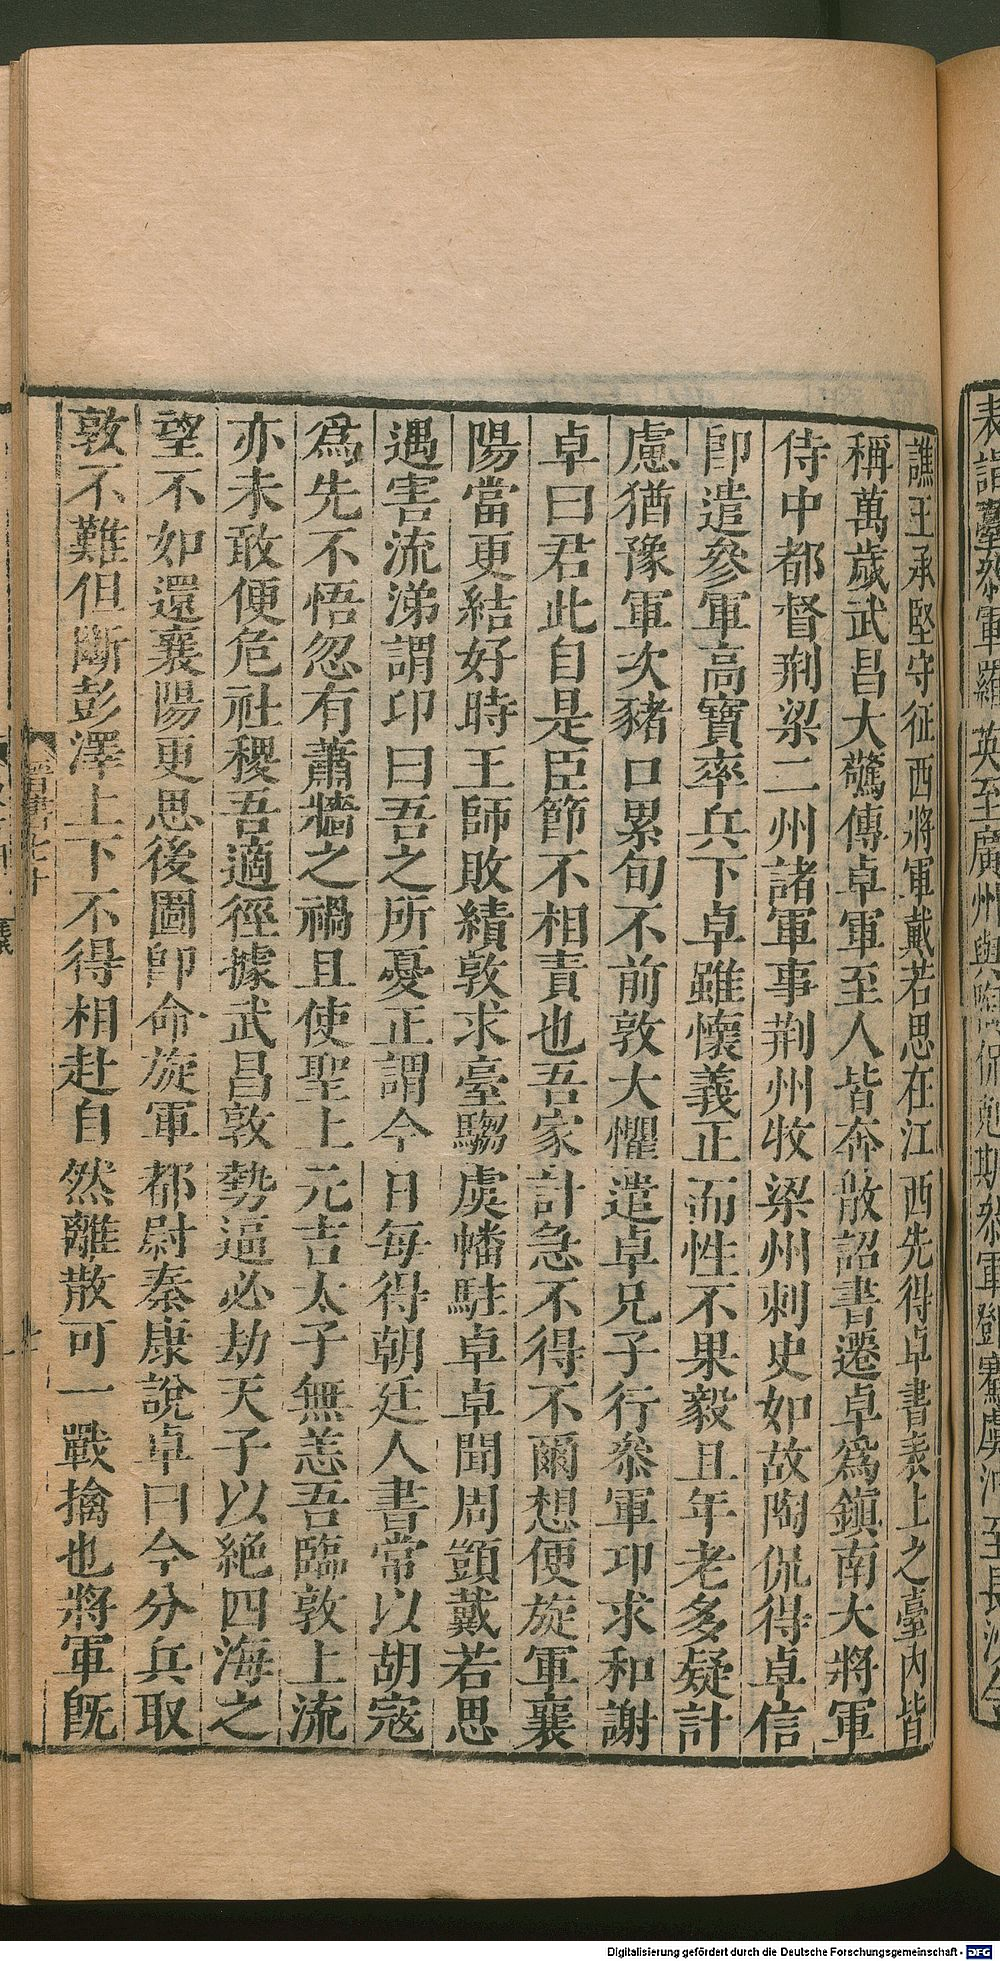 譙王承堅守征西將軍戴若思在江西先得卓書表上之臺內皆
稱萬歲武昌大驚傳卓軍至人皆奔散詔書遷卓爲鎭南大將軍
侍中都督荆梁二州諸軍事荆州牧梁州刺史如故陶侃得卓信
卽遣參軍高寶率兵下卓雖懷義正而性不果毅且年老多疑計
慮猶豫軍次豬口累旬不前敦大懼遣卓兄子行參軍卬求和謝
卓曰君此自是臣節不相責也吾家計急不得不爾想便旋軍襄
陽當更結好時王師敗績敦求臺騶虞幡駐卓卓聞周顗戴若思
遇害流涕謂卬曰吾之所憂正謂今日每得朝廷人書常以胡寇
爲先不悟忽有蕭牆之禍且使聖上元吉太子無恙吾臨敦上流
亦未敢便危社稷吾適徑據武昌敦勢逼必劫天子以絶四海之
望不如還襄陽更思後圖卽命旋軍都尉秦康說卓曰今分兵取
敦不難但斷彭澤上下不得相赴自然離散可一戰擒也將軍旣
晉書七十
Digitalisierung gefördert durch die Deutsche Forschungsgemeinschaft - DFG